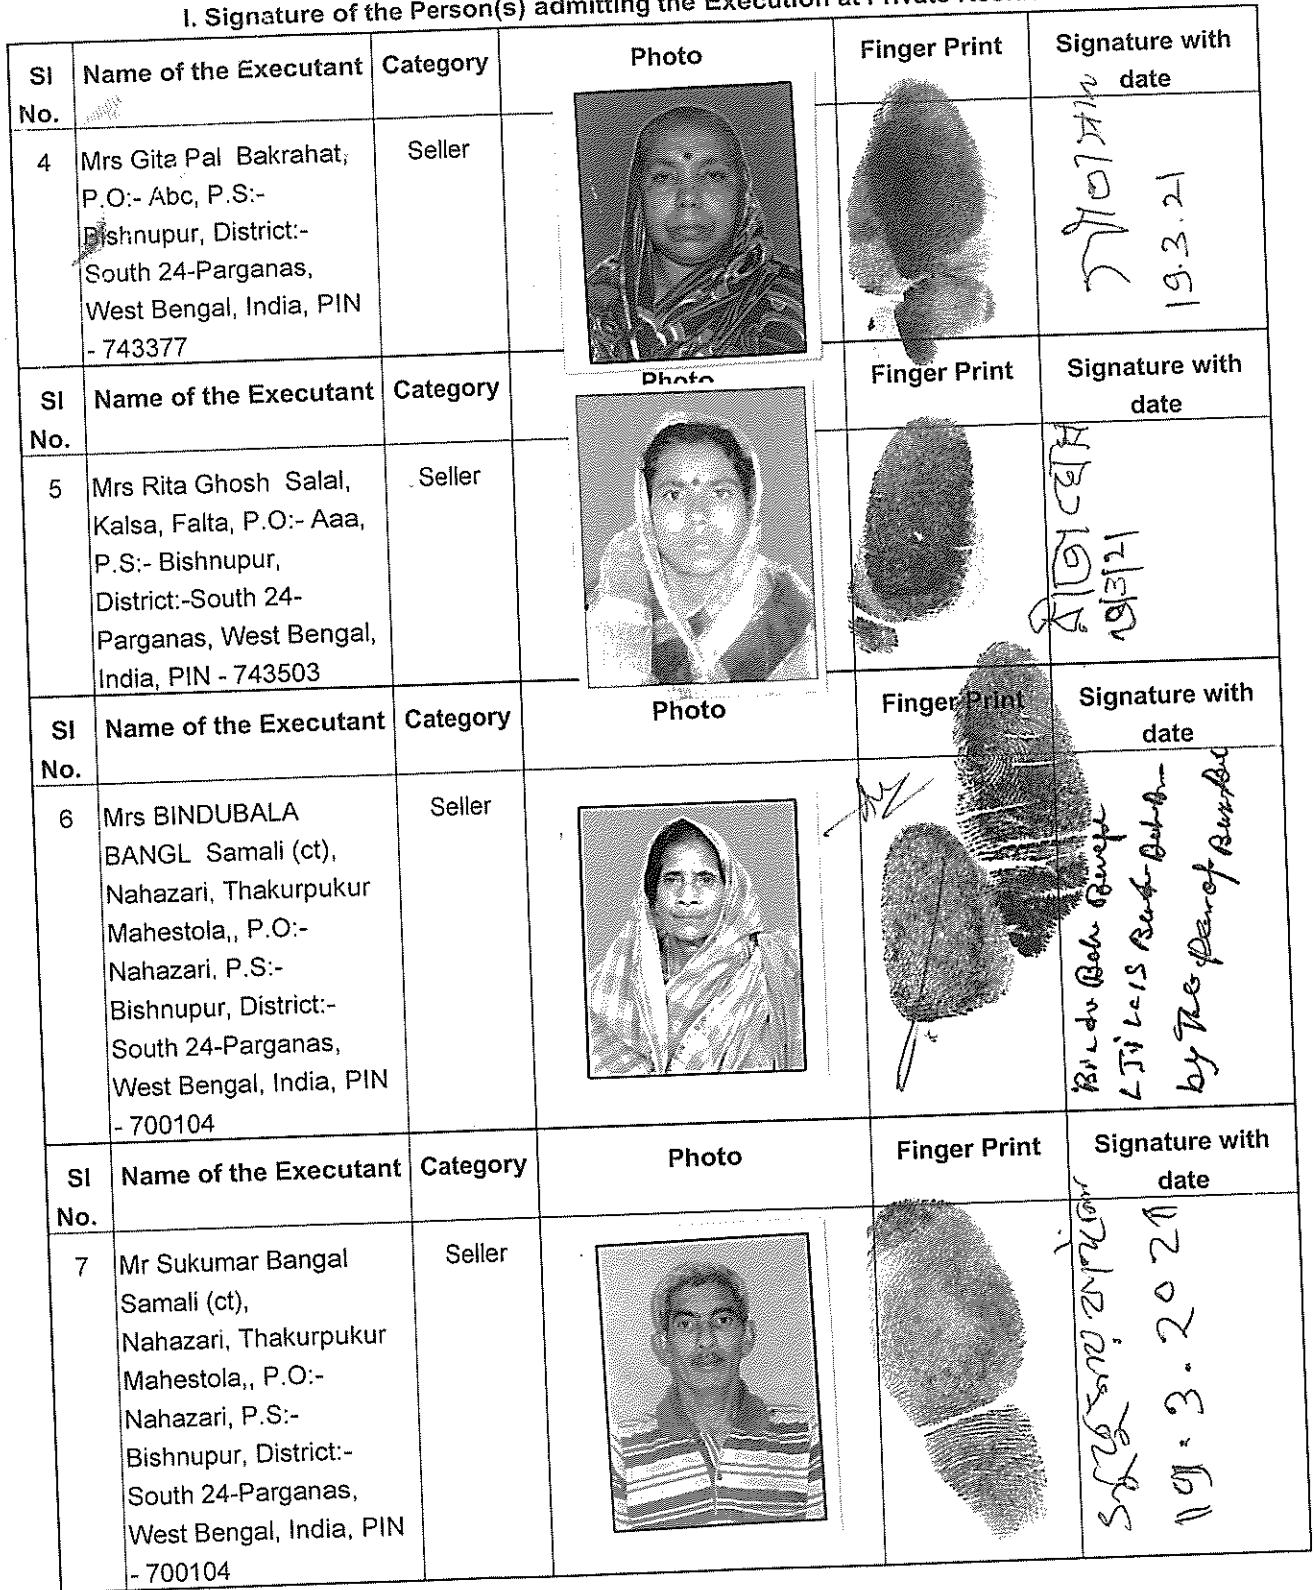 I. Signature of the Person(s) admitting the Execution at Private
Sl No. Name of the Executant Category Photo Finger Print Signature with date
4 Mrs Gita Pal Bakrahat, Seller
P.O:- Abc, P.S:-
Bishnupur, District:-
South 24-Parganas,
West Bengal, India, PIN
- 743377
19.3.21
Sl No. Name of the Executant Category Photo Finger Print Signature with date
5 Mrs Rita Ghosh Salal, Seller
Kalsa, Falta, P.O:- Aaa,
P.S:- Bishnupur,
District:-South 24-
Parganas, West Bengal,
India, PIN - 743503
রীতা ঘোষ
19/3/21
Sl No. Name of the Executant Category Photo Finger Print Signature with date
6 Mrs BINDUBALA Seller
BANGL Samali (ct),
Nahazari, Thakurpukur
Mahestola,, P.O:-
Nahazari, P.S:-
Bishnupur, District:-
South 24-Parganas,
West Bengal, India, PIN
- 700104
by The Pen of
Sl No. Name of the Executant Category Photo Finger Print Signature with date
7 Mr Sukumar Bangal Seller
Samali (ct),
Nahazari, Thakurpukur
Mahestola,, P.O:-
Nahazari, P.S:-
Bishnupur, District:-
South 24-Parganas,
West Bengal, India, PIN
- 700104
19.3.2021